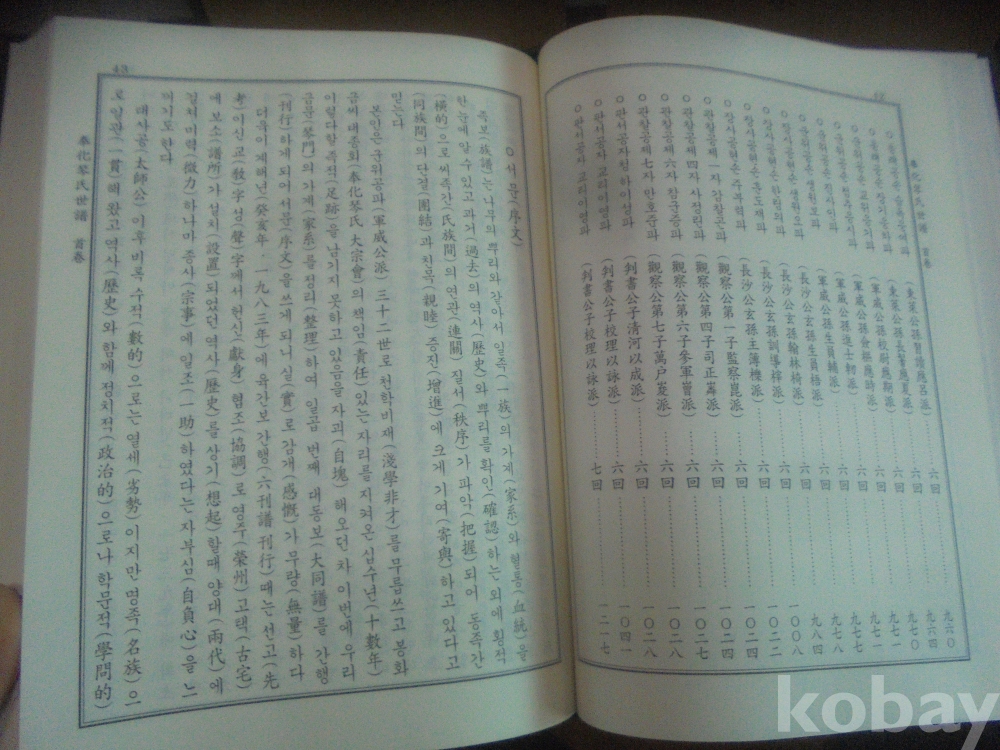 奉化琴氏世譜 首卷
(東萊公孫習讀應呂派) 六回 九六〇
(東萊公孫長髯應夏派) 六回 九六四
(軍威公孫校尉應期派) 六回 九七〇
(軍威公孫會樞應時派) 六回 九七一
(軍威公孫進士軔派) 六回 九七八
(軍威公孫生員輔派) 六回 九八四
(長沙公玄孫生員梧派)
○장사공현손한림의파 (長沙公玄孫翰林椅派) 六回 一〇〇八
○장사공현손훈도재파 (長沙公玄孫訓導梓派) 六回 一〇二二
○장사공현손주부력파 (長沙公玄孫主簿櫟派) 六回 一〇二四
○관찰공제一자감찰곤파 (觀察公第一子監察崑派) 六回 一〇二四
○관찰공제四자사정륜파 (觀察公第四子司正崙派) 六回 一〇二七
○관찰공제六자참군증파 (觀察公第六子參軍嶒派) 六回 一〇二八
○관찰공제七자만호준파 (觀察公第七子萬戶峻派) 六回 一〇二八
○판서공자청하이성파 (判書公子清河以成派) 六回 一〇四一
○판서공자교리이영파 (判書公子校理以詠派) 七回 一二一七
43
○서문(序文)
족보(族譜)는 나무의 뿌리와 같아서 일족(一族)의 가계(家系)와 혈통(血統)을
한눈에 알 수 있고 과거(過去)의 역사(歷史)와 뿌리를 확인(確認)하는 외에 횡적
(橫的)으로 씨족간(氏族間)의 연관(連關) 질서(秩序)가 파악(把握)되어 동족간
(同族間)의 단결(團結)과 친목(親睦) 증진(增進)에 크게 기여(寄與)하고 있다고
믿는다
본인은 군위공파(軍威公派) 三十二世로 천학비재(淺學非才)를 무릅쓰고 봉화
금씨 대종회(奉化琴氏 大宗會)의 책임(責任)있는 자리를 지켜온 십수년(十數年)
이렇다할 족적(足跡)을 남기지 못하고 있음을 자괴(自塊)해오던 차 이번에 우리
금문(琴門)의 가계(家系)를 정리(整理)하여 일곱 번째 대동보(大同譜)를 간행
(刊行)하게 되어 서문(序文)을 쓰게 되니 실(實)로 감개(感慨)가 무량(無量)하다
더욱이 계해년(癸亥年·一九八三年)에 육간보 간행(六刊譜刊行) 때는 선고(先
考)이신 교(敎)字 성(聲)字께서 헌신(獻身) 협조(協調)로 영주(榮州) 고택(古宅)
에 보소(譜所)가 설치(設置)되었던 역사(歷史)를 상기(想起)할때 양대(兩代)에
걸쳐 미력(微力)하나마 종사(宗事)에 일조(一助)하였다는 자부심(自負心)을 느
끼기도 한다
태사공(太師公)이후 비록 수적(數的)으로는 열세(劣勢)이지만 명족(名族)으
로 일관(一貫)해 왔고 역사(歷史)와 함께 정치적(政治的)으로나 학문적(學問的)
奉化琴氏世譜 首卷
kobay